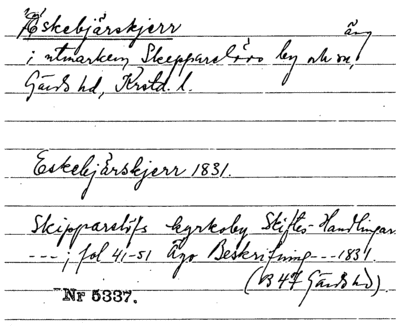 Eskebjärskjerr äng
i utmarken, Skepparslövs by och sn,
Gärds hd, Krstd. l.
Eskebjärskjerr 1831.
Skipparslöfs kyrkoby Skiftes-Handlingar
---; fol 41-51 Ägo Beskrifning --- 1831
(B 47 Gärds hd).
Nr 5337.